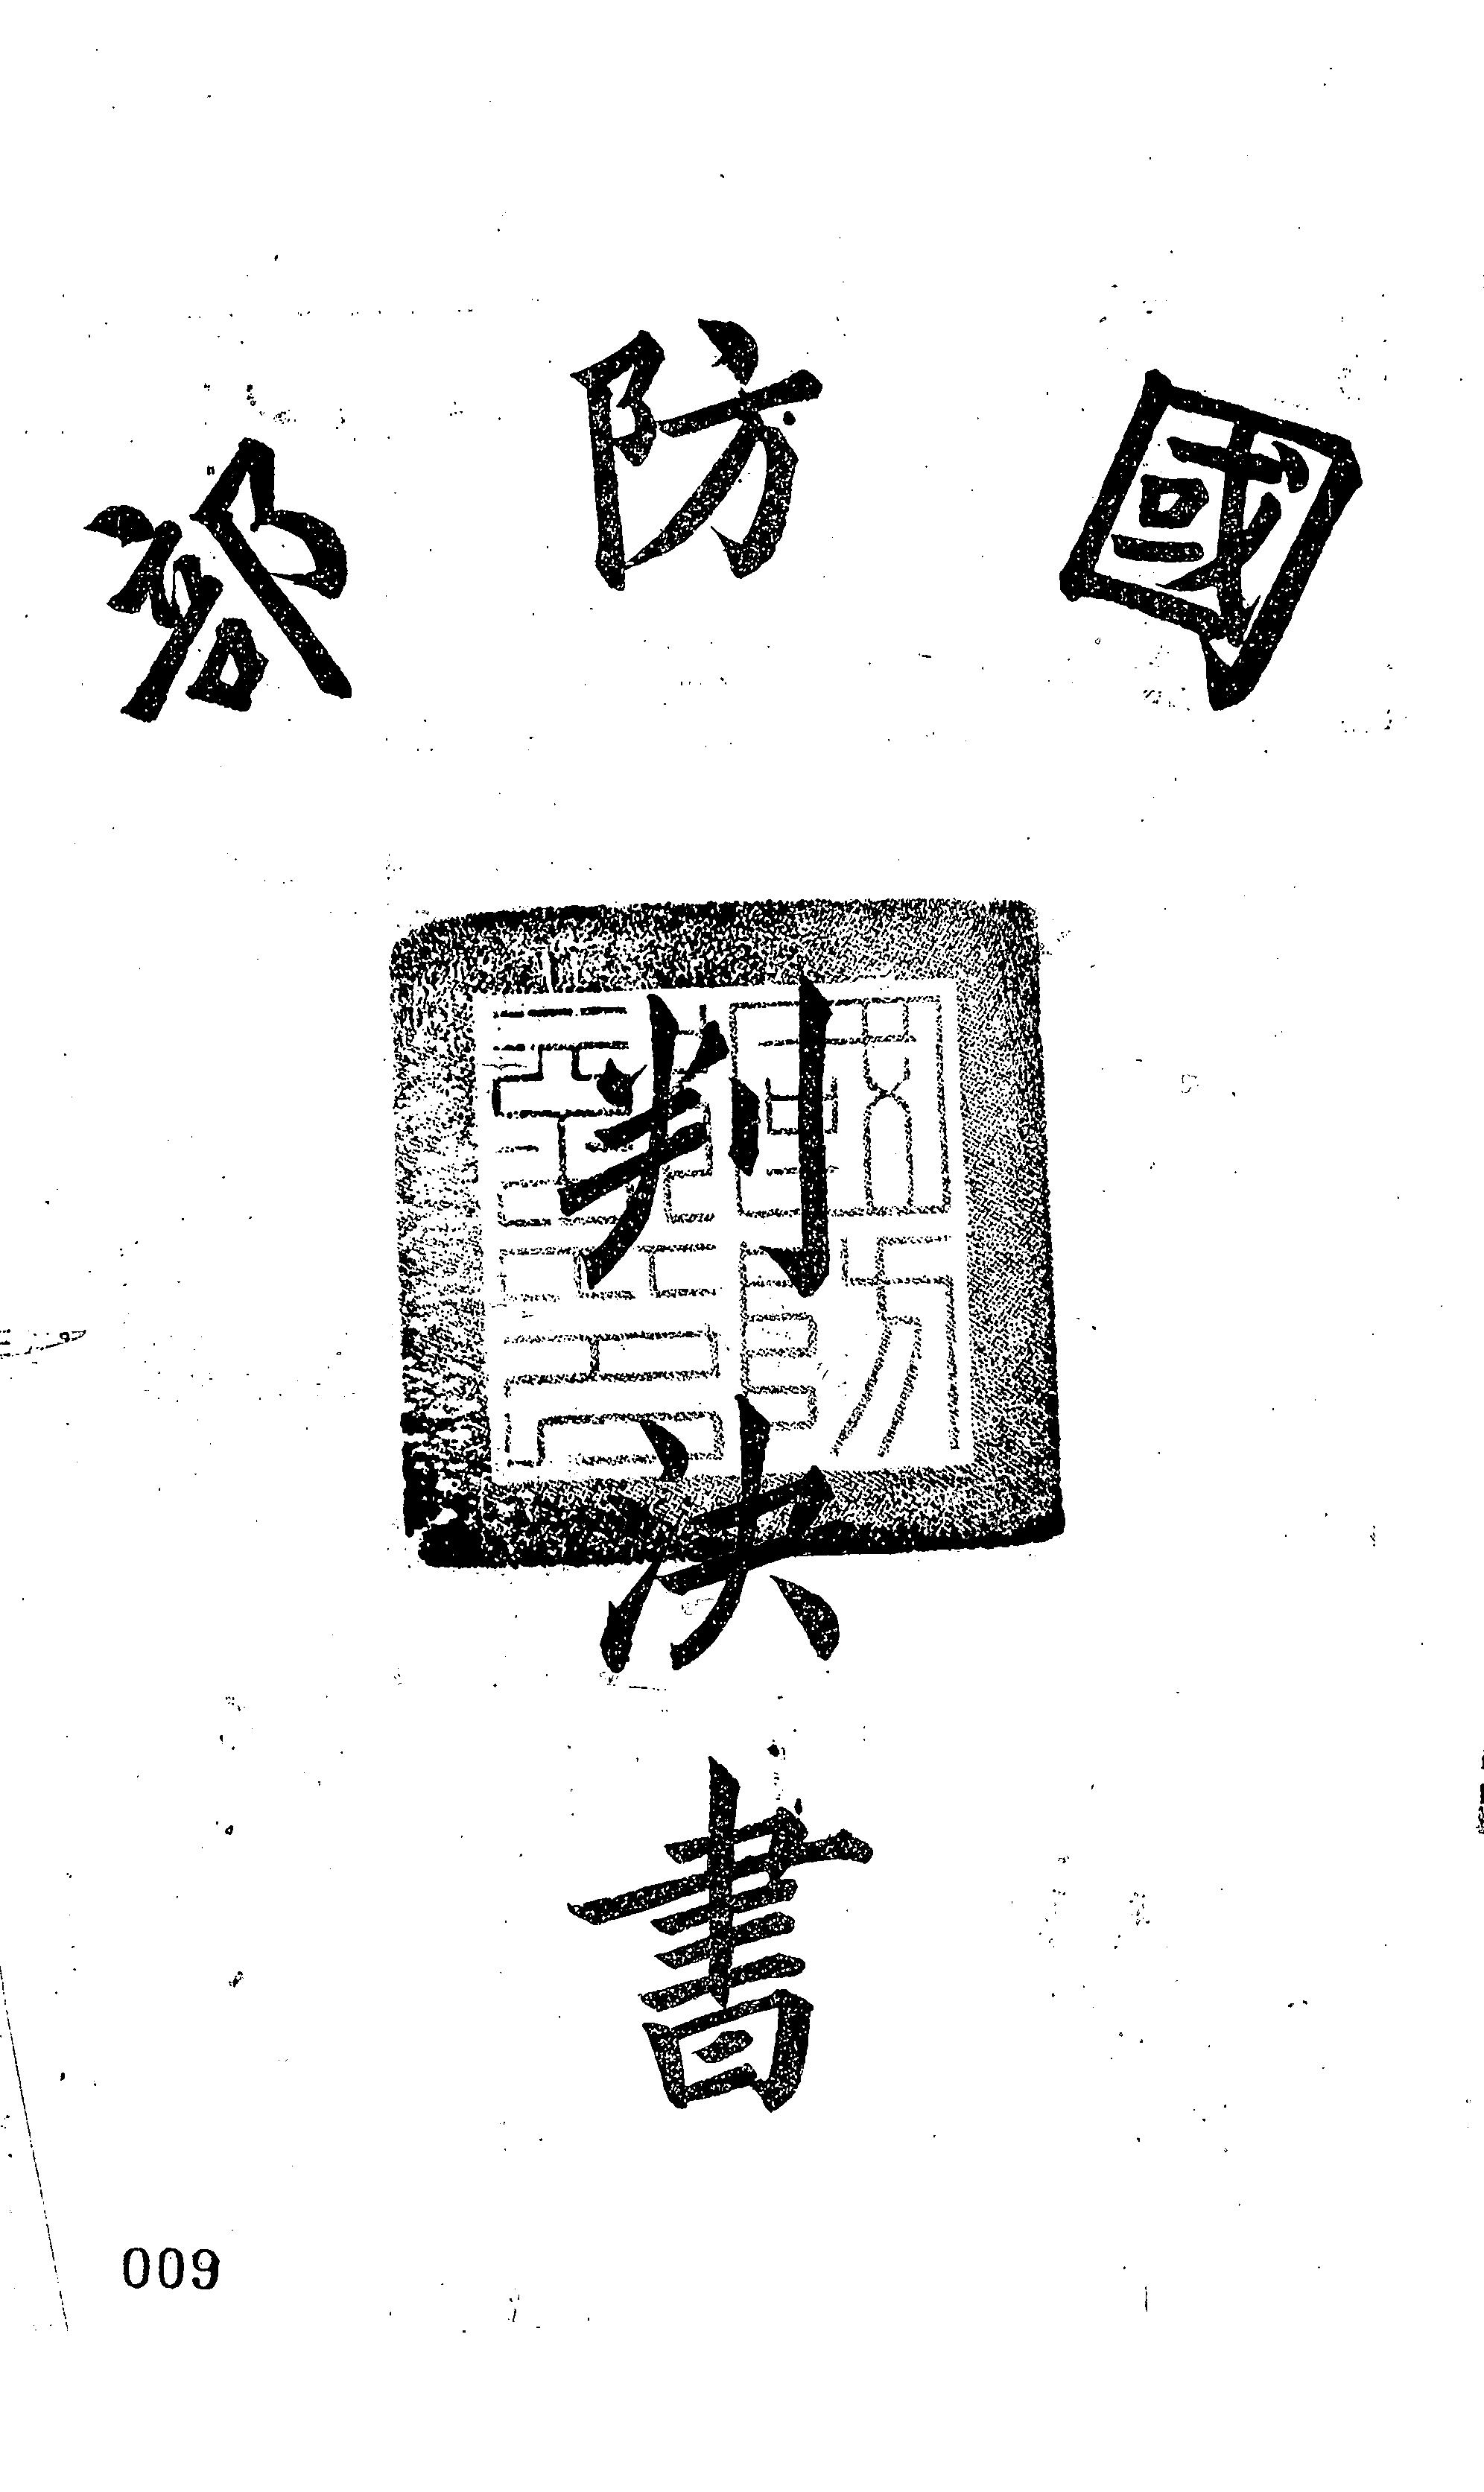 國防部
判決書
009